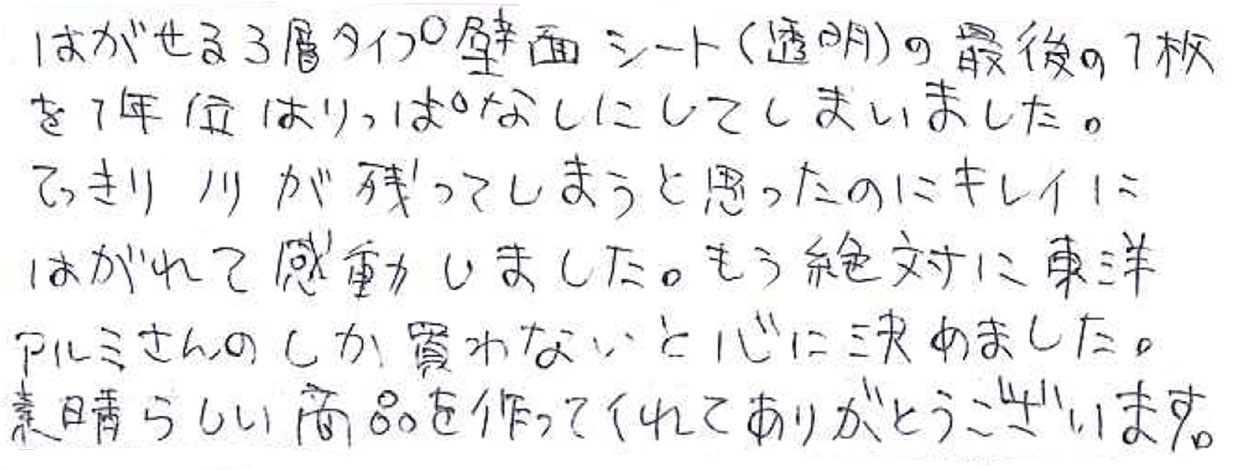 はがせる3層タイプ壁面シート(透明)の最後の1枚
を1年位はりっぱなしにしてしまいました。
てっきりノリが残ってしまうと思ったのにキレイに
はがれて感動しました。もう絶対に東洋
アルミさんのしか買わないと心に決めました。
素晴らしい商品を作ってくれてありがとうございます。